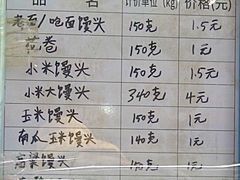 品 名 计价单位(kg) 价格(元)
老面/呛面馒头 150克 1.5元
花卷 150克 1元
小米馒头 150克 1.5元
小米大馒头 340克 4元
玉米馒头 150克 1元
南瓜玉米馒头 140克 1元
高粱馒头 1元